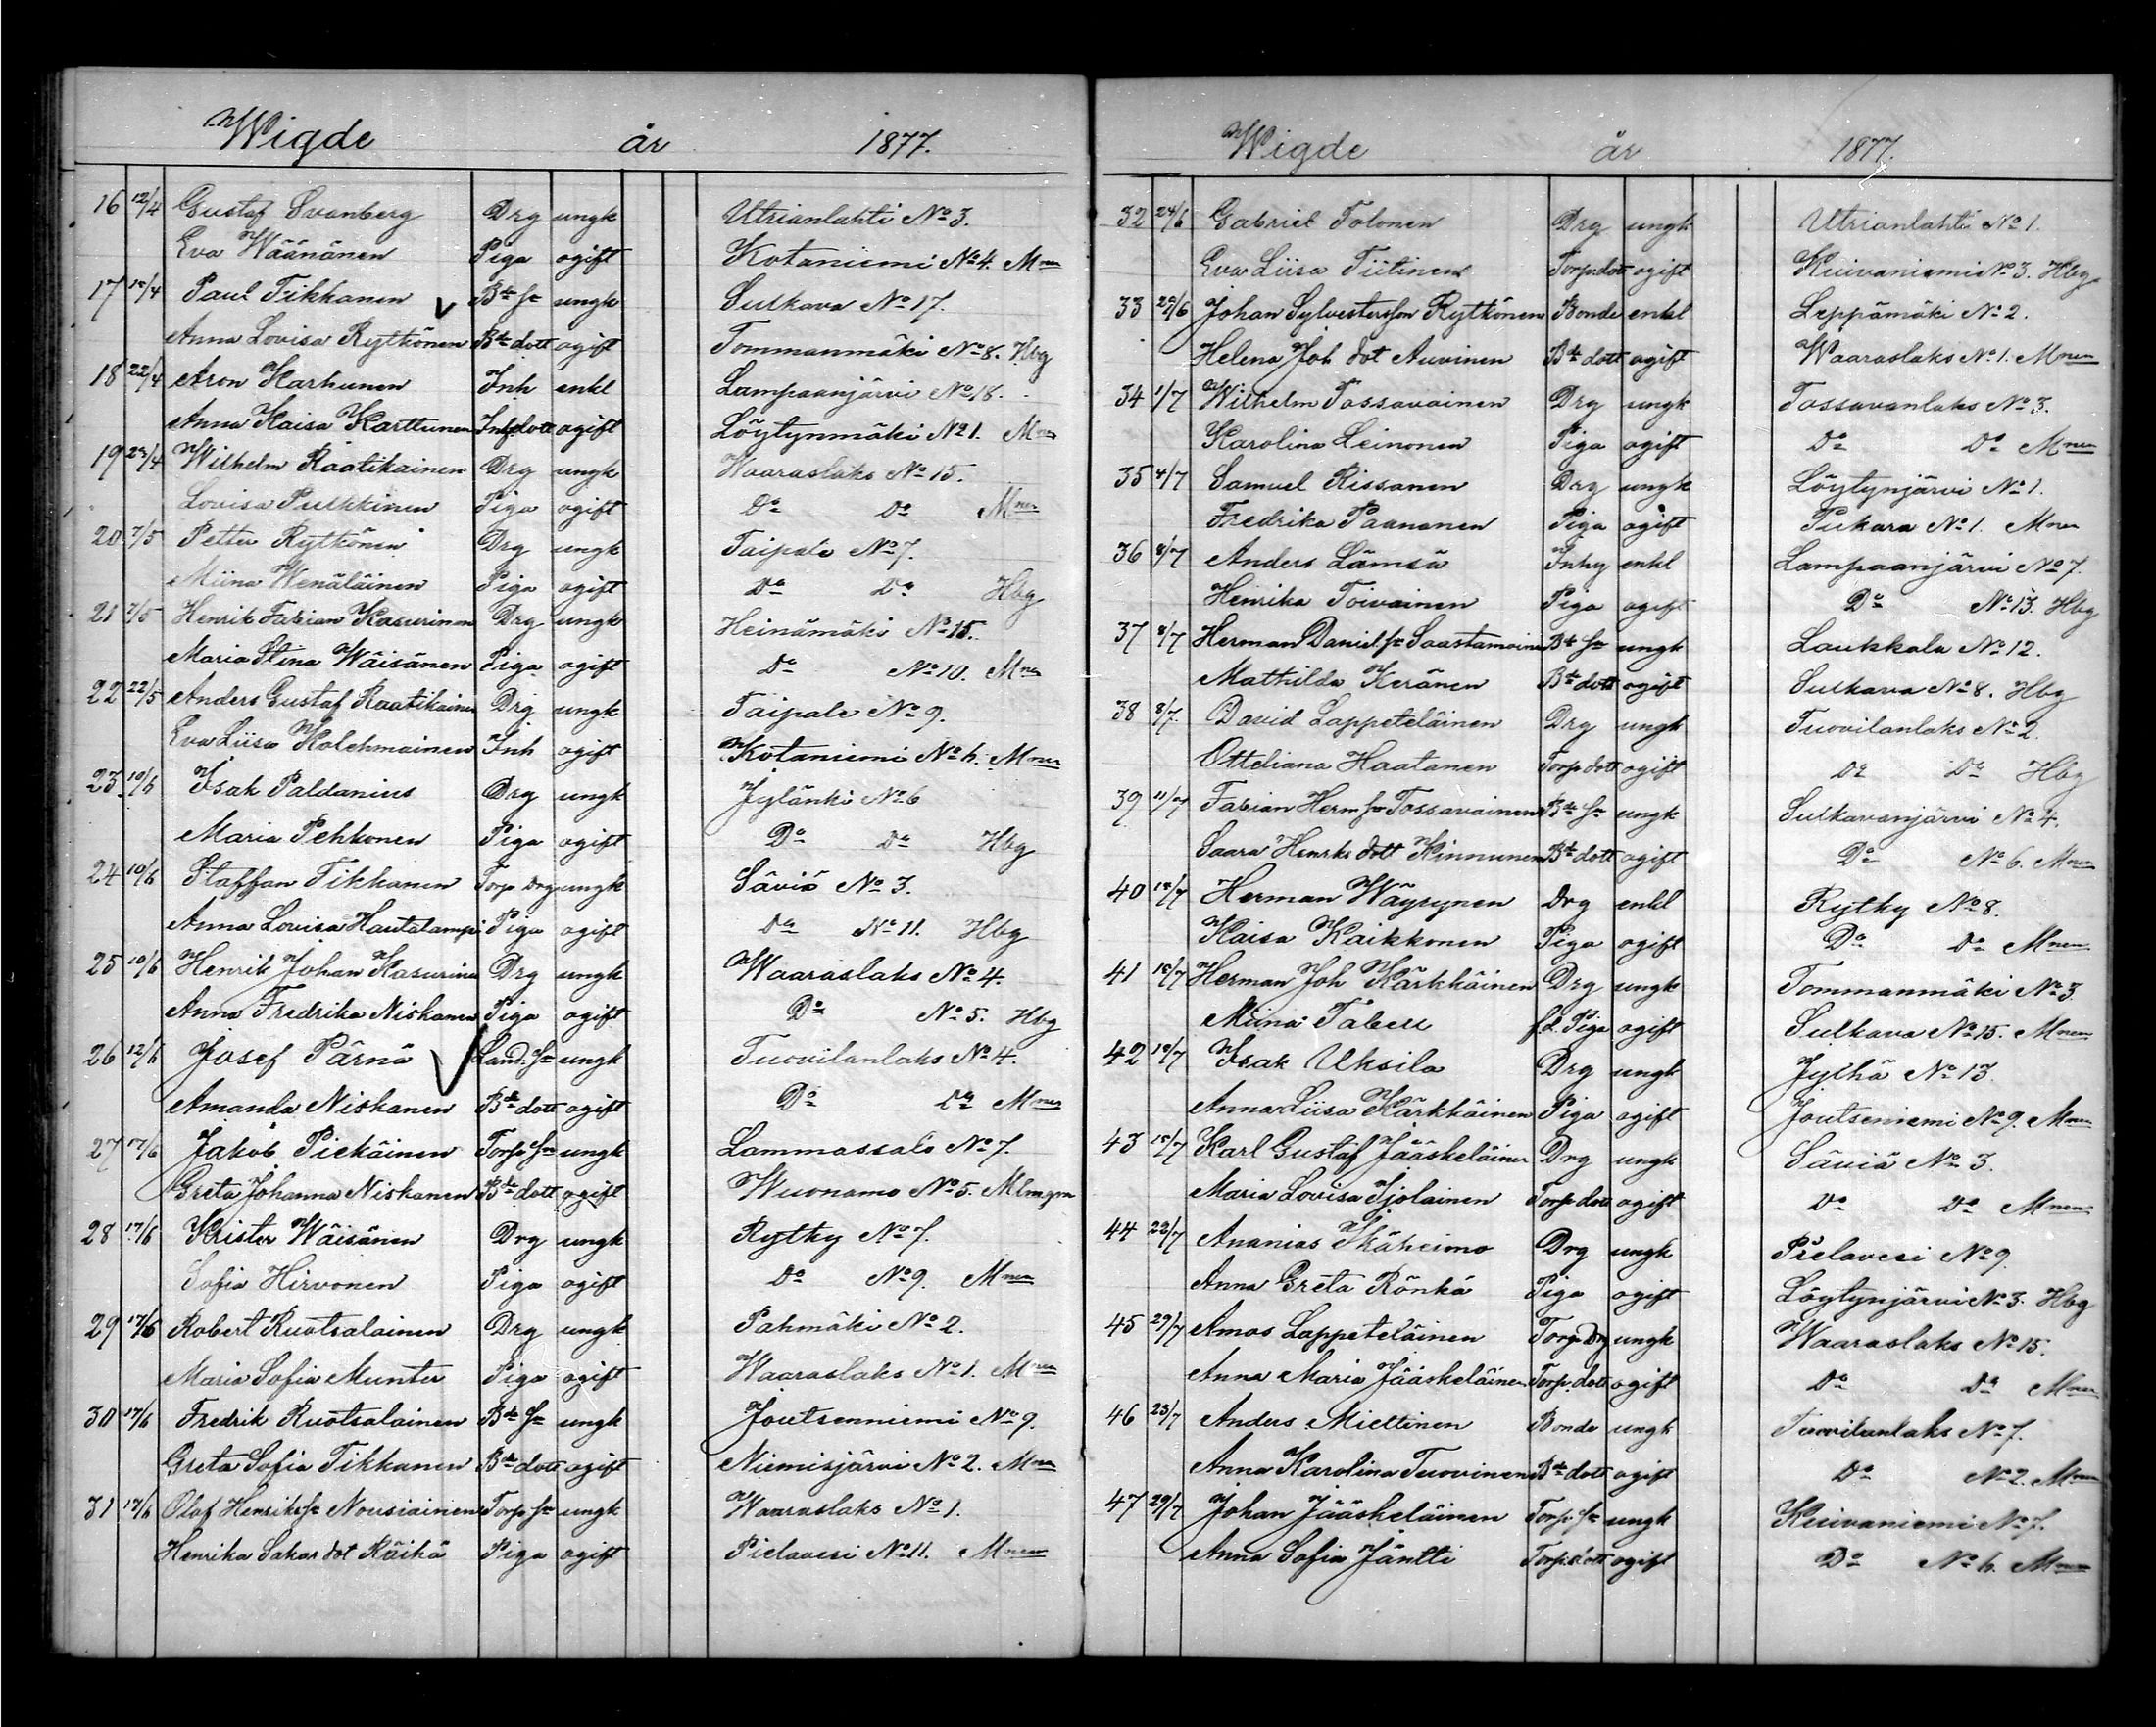 Wigde år 1877.
16 12/4 Gustaf Svanberg Drg ungk Utrianlahti No 3.
Eva Wäänänen Piga ogift Kotaniemi No 4. Mnen
17 Paul Tikkanen Bde sn ungk Sulkava No 17.
Anna Lovisa Rytkönen Bde dott ogift Tommanmäki No 8. Hbg
18 22/4 Aron Karhunen Inh enkl Lampaanjärvi No 18.
Anna Kaisa Karttunen Inh dott ogift Löytynmäki No 1. Mnen
19 Wilhelm Raatikainen Drg ungk Waaraslaks No 15.
Lovisa Pulkkinen Piga ogift Do Do Mnen
20 7/5 Petter Rytkönen Drg ungk Taipale No 7.
Miina Wenäläinen Piga ogift Do Do Hbg
21 7/5 Henrik Fabian Kasurinen Drg ungk Heinämäki No 15.
Maria Stina Wäisänen Piga ogift Do No 10. Mnen
22 22/5 Anders Gustaf Raatikainen Drg ungk Taipale No 9.
Eva Liisa Kolehmainen Inh ogift Kotaniemi No 4. Mnen
23 10/6 Isak Paldanius Drg ungk Jylänki No 6
Maria Pehkonen Piga ogift Do Do Hbg
24 10/6 Staffan Tikkanen Torp Drg ungk Säviä No 3.
Anna Lovisa Hautalampi Piga ogift Do No 11. Hbg
25 10/6 Henrik Johan Kasurinen Drg ungk Waaraslaks No 4.
Anna Fredrika Niskanen Piga ogift Do No 5. Hbg
26 12/6 Josef Pärnä Land. sn ungk Tuovilanlaks No 4.
Amanda Niskanen Bde dott ogift Do Do Mnen
27 17/6 Jakob Piekäinen Torp sn ungk Lammassalo No 7.
Greta Johanna Niskanen Bde dott ogift Wuonamo No 5.
28 17/6 Krister Wäisänen Drg ungk Rytky No 7.
Sofia Hirvonen Piga ogift Do No 9. Mnen
29 17/6 Robert Ruotsalainen Drg ungk Pahmäki No 2.
Maria Sofia Munter Piga ogift Waaraslaks No 1. Mnen
30 17/6 Fredrik Ruotsalainen Bde sn ungk Joutsenniemi No 9.
Greta Sofia Tikkanen Bde dott ogift Niemisjärvi No 2. Mnen
31 17/6 Olof Henrikssn Nousiainen Torp sn ungk Waaraslaks No 1.
Henrika Sakar dot Räihä Piga ogift Pielavesi No 11. Mnen
Wigde år 1877.
32 24/6 Gabriel Tolonen Drg ungk Utrianlahti No 1.
Eva Liisa Tiitinen Torp dott ogift Kuivaniemi No 3. Hbg
33 Johan Sylvestersson Rytkönen Bonde enkl Leppämäki No 2.
Helena Joh dot Auvinen Bde dott ogift Waaraslaks No 1. Mnen
34 1/7 Wilhelm Tossavainen Drg ungk Tossavanlaks No 3.
Karolina Leinonen Piga ogift Do Do Mnen
35 4/7 Samuel Rissanen Drg ungk Löytynjärvi No 1.
Fredrika Paananen Piga ogift Pukara No 1. Mnen
36 8/7 Anders Lämsä Inhy enkl Lampaanjärvi No 7.
Henrika Toivainen Piga ogift Do No 13. Hbg
37 8/7 Herman Daniel sn Saastamoinen Bde sn ungk Laukkala No 12.
Mathilda Keränen Bde dott ogift Sulkava No 8. Hbg
38 8/7 David Lappeteläinen Drg ungk Tuovilanlaks No 2
Otteliana Haatanen Torp dott ogift Do Do Hbg
39 11/7 Fabian Herm sn Tossavainen Bde sn ungk Sulkavanjärvi No 4.
Saara Henriks dott Kinnunen Bde dott ogift Do No 6. Mnen
40 Herman Wäyrynen Drg enkl Rytky No 8.
Kaisa Kaikkonen Piga ogift Do Do Mnen
41 15/7 Herman Joh Kärkkäinen Drg ungk Tommanmäki No 3
Miina Taberi fd. Piga ogift Sulkava No 15. Mnen
42 Isak Uksila Drg ungk Jylhä No 13
Anna Liisa Kärkkäinen Piga ogift Joutseniemi No 9. Mnen
43 15/7 Karl Gustaf Jääskeläinen Drg ungk Säviä No 3.
Maria Lovisa Ijolainen Torp dott ogift Do Do Mnen
44 22/7 Ananias Ikäheimo Drg ungk Pielavesi No 9.
Anna Greta Rönkä Piga ogift Löytynjärvi No 3. Hbg
45 29/7 Amos Lappeteläinen Torp Drg ungk Waaraslaks No 15.
Anna Maria Jääskeläinen Torp. dott ogift Do Do Mnen
46 23/7 Anders Miettinen Bonde ungk Tuovilanlaks No 7.
Anna Karolina Tuovinen Bde dott ogift Do No 2. Mnen
47 29/7 Johan Jääskeläinen Torp. sn ungk Kuivaniemi No 7.
Anna Sofia Jäntti Torp. dott ogift Do No 4. Mnen